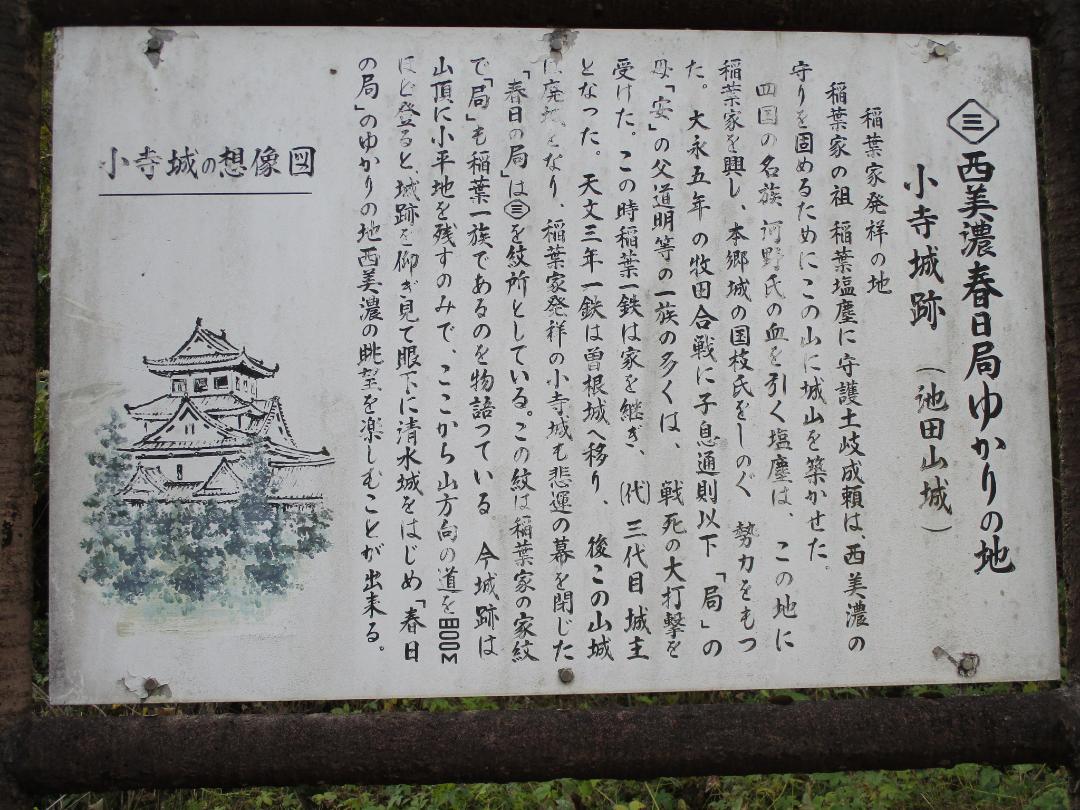 三 西美濃春日局ゆかりの地
小寺城跡 (池田山城)
稲葉家発祥の地
稲葉家の祖 稲葉塩塵に守護土岐成頼は、西美濃の
守りを固めるためにこの山に城山を築かせた。
四国の名族 河野氏の血を引く塩塵は、この地に
稲葉家を興し、本郷城の国枝氏をしのぐ 勢力をもつ
た。大永五年の牧田合戦に子息通則以下「局」の
母「安」の父道明等の一族の多くは、戦死の大打撃を
受けた。この時稲葉一鉄は家を継ぎ、(代)三代目城主
となった。天文三年一鉄は曽根城へ移り、後この山城
は廃城となり、稲葉家発祥の小寺城も悲運の幕を閉じた
「春日の局」は三を紋所としている。この紋は稲葉家の家紋
で「局」も稲葉一族であるのを物語つている 今城跡は
山頂に小平地を残すのみで、ここから山方向の道を800M
ほど登ると、城跡を仰ぎ見て眼下に清水城をはじめ「春日
の局」のゆかりの地西美濃の眺望を楽しむことが出来る。
小寺城の想像図